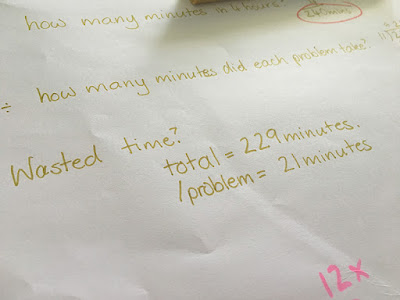 how many minutes in 4 hours? 240 mins
÷ how many minutes did each problem take?
Wasted time?
total = 229 minutes.
/problem = 21 minutes
12x